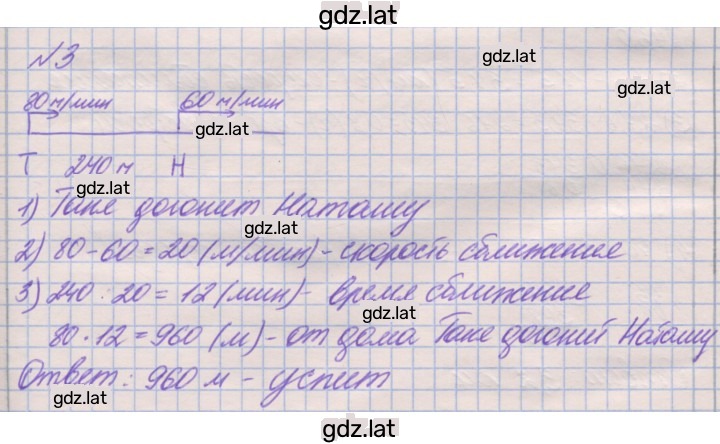 gdz.lat
№3
80 м/мин 60 м/мин
gdz.lat
gdz.lat
Т 240 м Н
gdz.lat
1) Таня догонит Наташу
gdz.lat
2) 80-60=20 (м/мин) - скорость сближение
3) 240:20=12 (мин) - время сближение
gdz.lat
80·12=960 (м) - от дома Таня догоний Наташу
Ответ: 960 м - успит
gdz.lat
gdz.lat